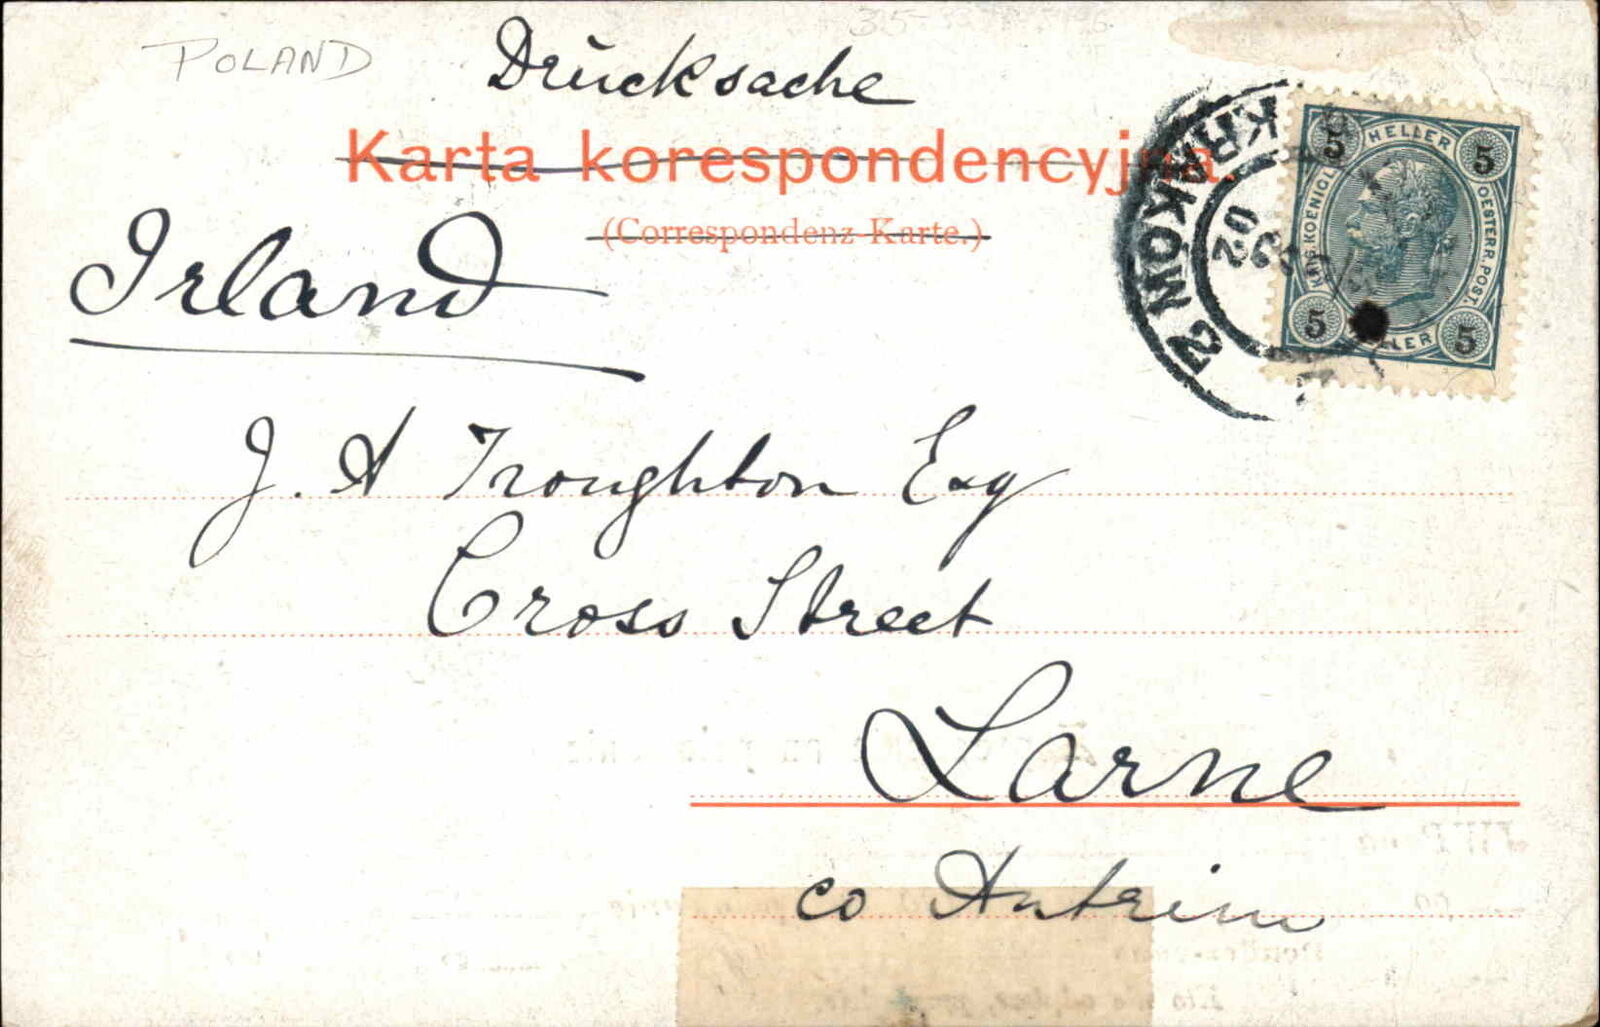 POLAND
35-
Drucksache
Karta korespondencyjna.
(Correspondenz-Karte.)
Irland
J. A Troughton Esq
Cross Street
Larne
co Antrim
KRAKÓW 2
02
5 HELLER 5
KAIS. KOENIGL.
OESTERR. POST.
5 HELLER 5